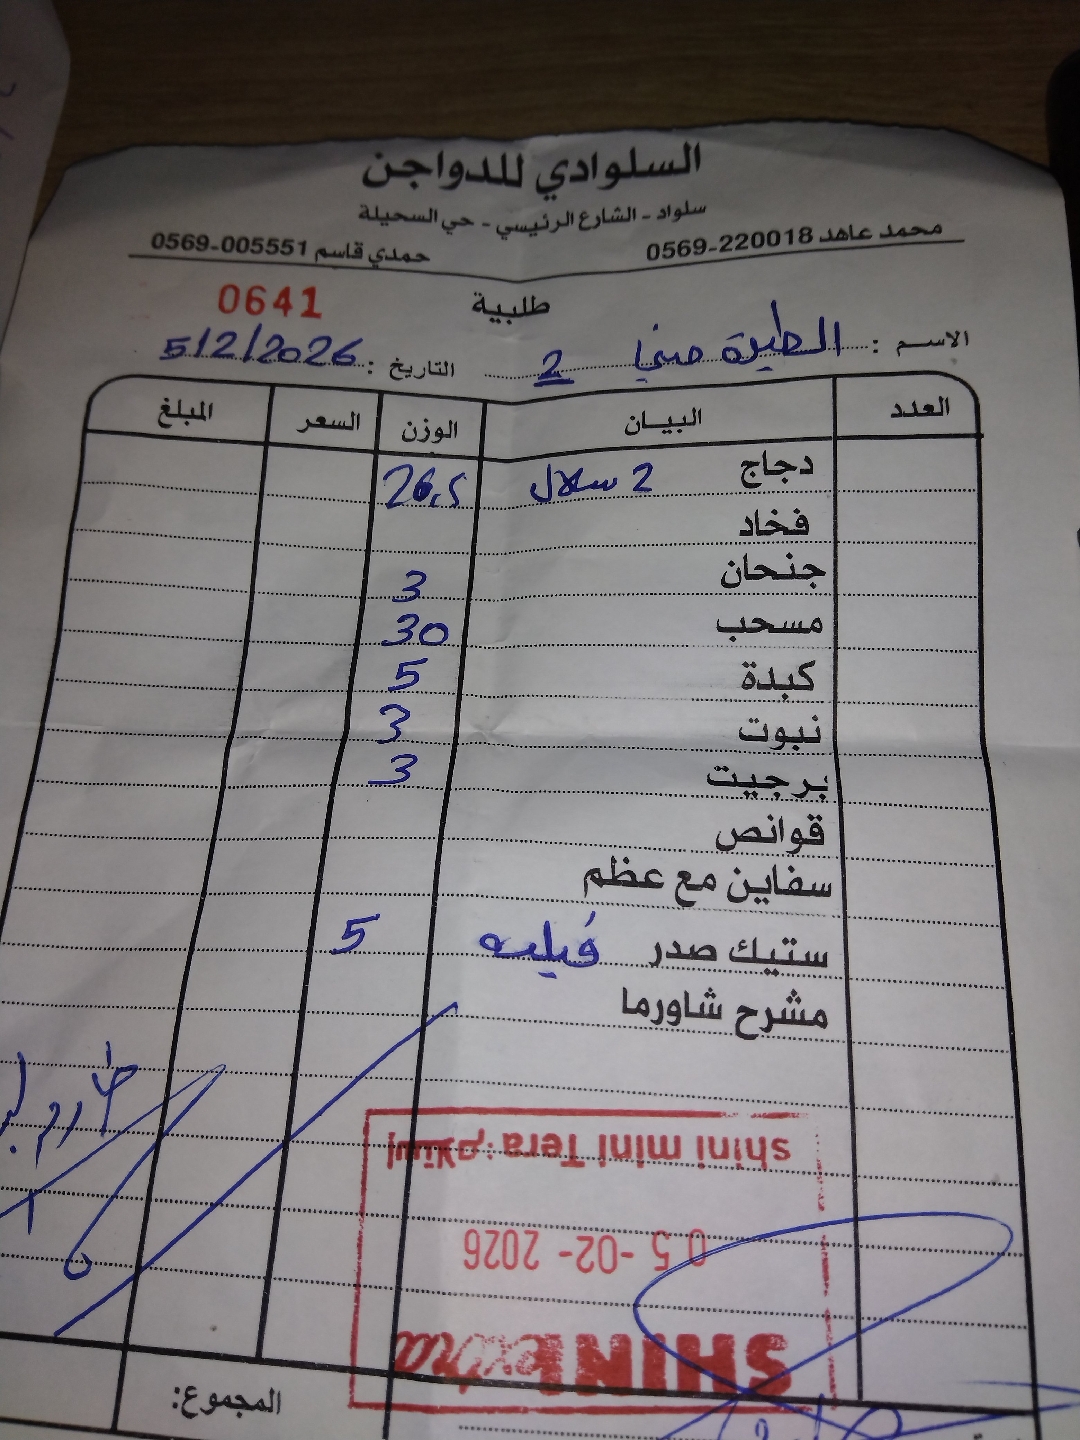 السلوادي للدواجن
سلواد - الشارع الرئيسي - حي السحيلة
محمد عاهد 220018-0569 حمدي قاسم 005551-0569
طلبية 0641
الاسم : الطيرة ميني 2 التاريخ : 5/2/2026
العدد البيـــان الوزن السعر المبلغ
دجاج 2 سلال 26.5
فخاد
جنحان 3
مسحب 30
كبدة 5
نبوت 3
برجيت 3
قوانص
سفاين مع عظم
ستيك صدر فيليه 5
مشرح شاورما
shini mini Tera إستلام:
05-02-2026
SHINI extra
المجموع: